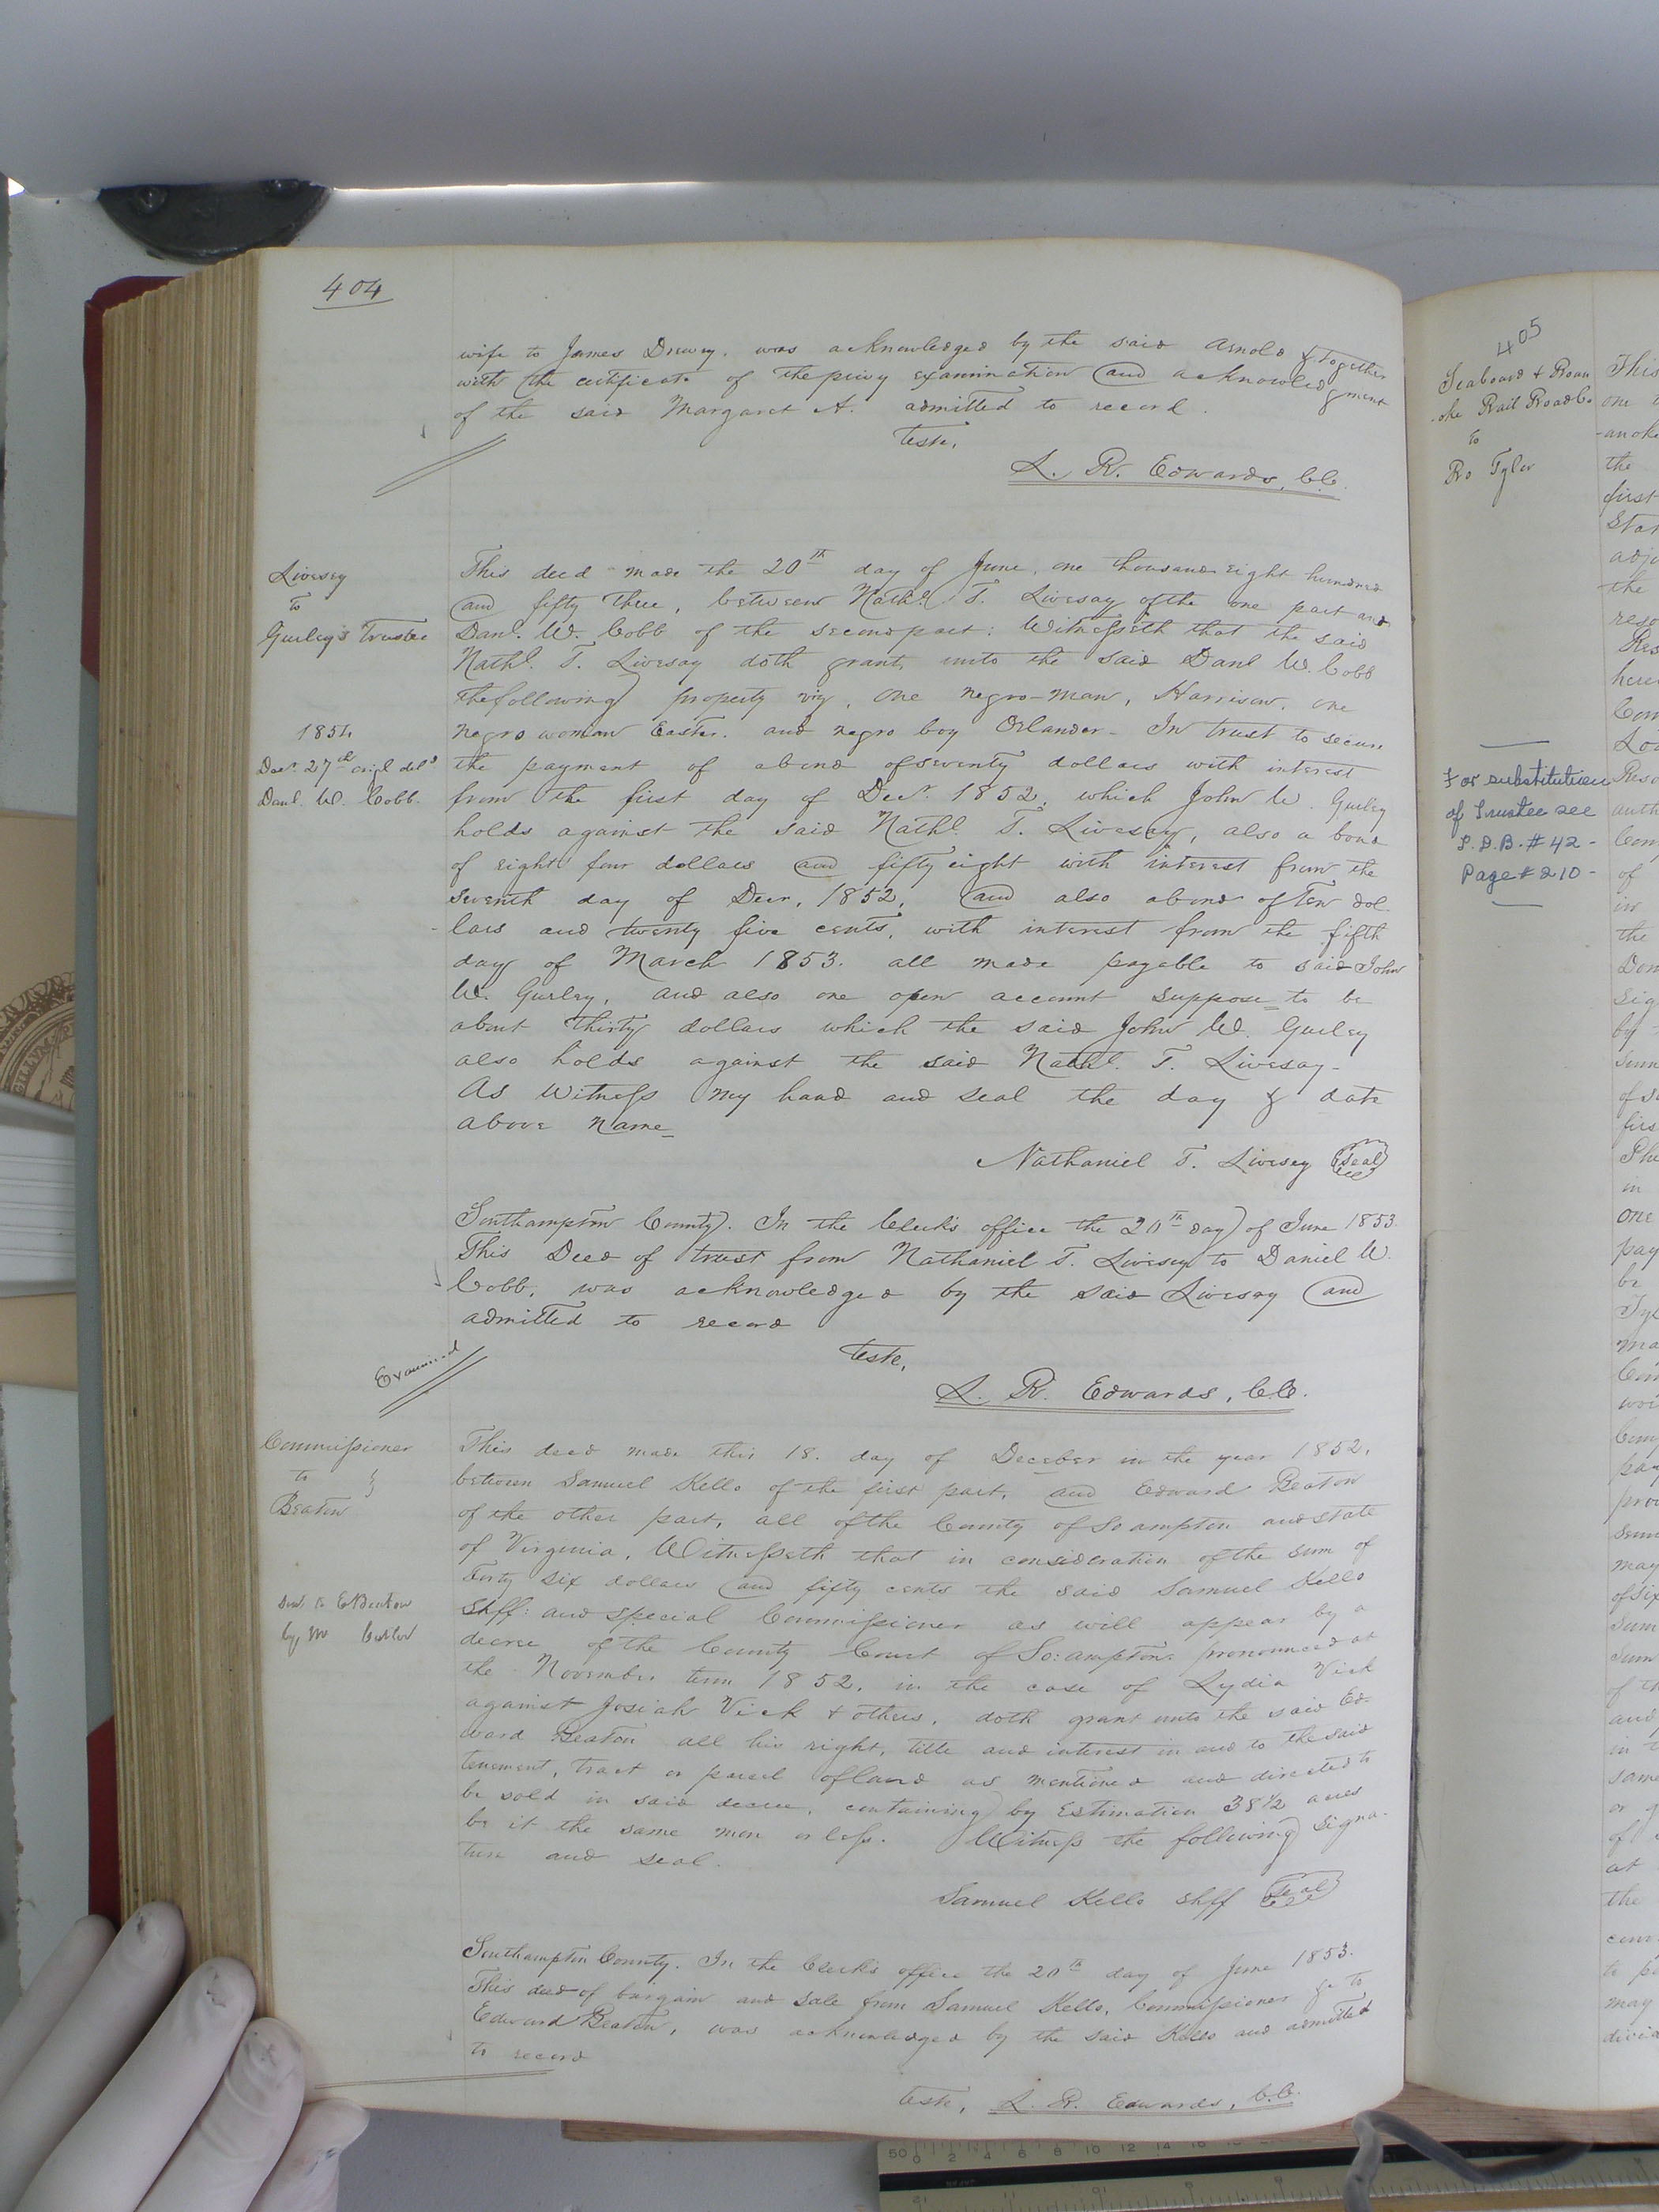 404
wife to James Drewry, was acknowledged by the said Arnold & together
with the certificate of the privy examination and acknowledgment
of the said Margaret A. admitted to record
Teste,
L. R. Edwards, C.C.
Livesay
to
Gurley's Trustee
1854
Decr. 27th origl deld
Danl. W. Cobb.
This deed made the 20th day of June, one thousand eight hundred
and fifty three, between Nathl. T. Livesay of the one part and
Danl. W. Cobb of the second part: Witnesseth that the said
Nathl. T. Livesay doth grant, unto the said Danl W. Cobb
the following property viz, One negro-man, Harrison, one
negro woman Easter. and negro boy Orlander - In trust to secure
the payment of a bond of seventy dollars with interest
from the first day of Decr. 1852, which John W. Gurley
holds against the said Nathl. T. Livesay, also a bond
of eight four dollars and fifty eight with interest from the
seventh day of Decr, 1852, and also a bond of Ten dol
-lars and twenty five cents, with interest from the fifth
day of March 1853. all made payable to said John
W. Gurley, and also one open account suppose to be
about thirty dollars which the said John W. Gurley
also holds against the said Nathl. T. Livesay -
As Witness my hand and seal the day & date
above name
Nathaniel T. Livesay Seal
Southampton County. In the Clerk's office the 20th day of June 1853.
This Deed of trust from Nathaniel T. Livesay to Daniel W.
Cobb, was acknowledged by the said Livesay and
admitted to record
Teste,
L. R. Edwards, C.C.
Examined
Commissioner
to
Beaton
by Mr
This deed made this 18. day of Deceber in the year 1852,
between Samuel Kello of the first part, and Edward Beaton
of the other part, all of the County of So ampton and state
of Virginia, Witnesseth that in consideration of the sum of
Forty six dollars and fifty cents the said Samuel Kello
Shff: and special Commissioner as will appear by a
decree of the County Court of So:ampton pronounced at
the November term 1852, in the case of Lydia Vick
against Josiah Vick & others, doth grant unto the said Ed-
ward Beaton all his right, title and interest in and to the said
tenement, tract or parcel of land as mentioned and directed to
be sold in said decree, containing by Estimation 38 1/2 acres
be it the same more or less. Witness the following signa-
ture and seal.
Samuel Kello Shff Seal
Southampton County. In the Clerk's office the 20th day of June 1853.
This deed of bargain and sale from Samuel Kello, Commissioner &c to
Edward Beaton, was acknowledged by the said Kello and admitted
to record
Teste, L. R. Edwards, C.C.
405
Seaboard & Roan
-oke Rail Road Co
to
Pro Tyler
For substitution
of Trustee see
D. B. # 42 -
Page # 210 -
This
one
the
first
the